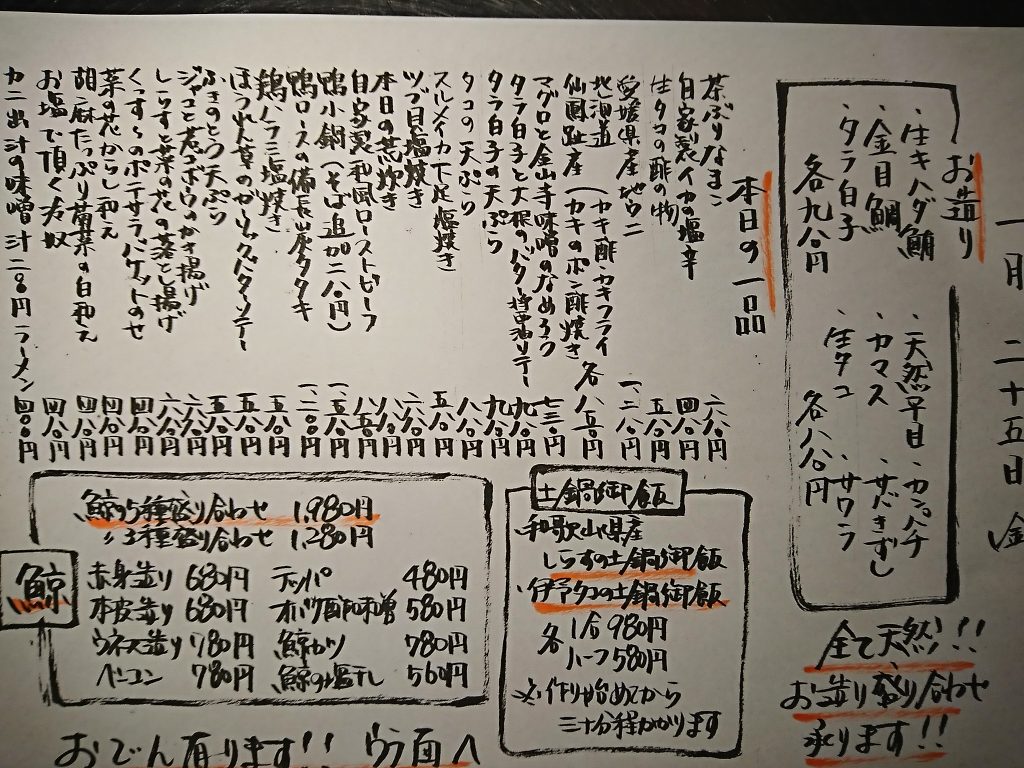 一月二十五日 金
お造り
・生キハダ鮪
・金目鯛
・タラ白子
各九八〇円
・天然平目
・カマス
・生タコ
・カンパチ
・サバきずし
・サワラ
各八八〇円
全て天然!!
お造り盛り合わせ
承ります!!
本日の一品
茶ぶりなまこ 六八〇円
自家製イカの塩辛 四八〇円
生タコの酢の物 五八〇円
愛媛県産地ウニ 一、二八〇円
北海道
仙鳳趾産(カキ酢・カキフライ
カキのポン酢焼き 各八五〇円
マグロと金山寺味噌のなめろう 七三〇円
タラ白子と大根のバター醤油ソテー 九八〇円
タラ白子の天ぷら 九八〇円
タコの天ぷら 八八〇円
スルメイカ下足塩焼き 五八〇円
ツブ貝塩焼き 六八〇円
本日の荒炊き 八八〇円
自家製和風ローストビーフ 八五〇円
鴨小鍋(そば追加二八〇円) 一、五八〇円
鴨ロースの備長炭タタキ 一、二〇〇円
鶏ハラミ塩焼き 五八〇円
ほうれん草のガーリックバターソテー 五八〇円
ふきのとう天ぷら 五八〇円
ジャコと若ゴボウのかき揚げ 六八〇円
しらすと菜の花の落とし揚げ 六八〇円
くんすらのポテサラバケットのせ 四八〇円
菜の花からし和え 四八〇円
胡麻たっぷり菊菜の白和え 四八〇円
お塩で頂く冷奴 四八〇円
カニ出汁の味噌汁二八〇円 ラーメン 四八〇円
土鍋御飯
・和歌山県産
しらすの土鍋御飯
・伊予タコの土鍋御飯
各 1合 980円
ハーフ 580円
※作り始めてから
三十分程かかります
鯨
鯨の5種盛り合わせ 1,980円
〃 3種盛り合わせ 1,280円
赤身造り 680円
本皮造り 680円
ウネス造り 780円
ベーコン 780円
テッパ 480円
オバケ酢味噌 580円
鯨カツ 780円
鯨の塩干し 560円
おでん有ります!! ウラ面へ